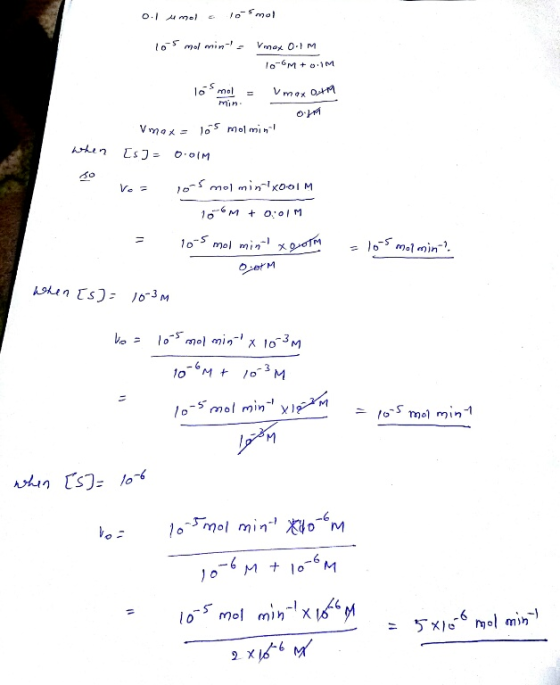 0.1 μmol = 10⁻⁵mol
10⁻⁵ mol min⁻¹ = Vmax 0.1 M
10⁻⁶M + 0.1M
10⁻⁵ mol/min. = Vmax 0.1M
0.1M
Vmax = 10⁻⁵ mol min⁻¹
when [S] = 0.01M
so
V₀ = 10⁻⁵ mol min⁻¹x0.01 M
10⁻⁶M + 0.01M
= 10⁻⁵ mol min⁻¹ x 0.01M = 10⁻⁵ mol min⁻¹.
0.01M
when [S] = 10⁻³M
V₀ = 10⁻⁵ mol min⁻¹ x 10⁻³M
10⁻⁶M + 10⁻³M
= 10⁻⁵ mol min⁻¹ x 10⁻³M = 10⁻⁵ mol min⁻¹
10⁻³M
when [S] = 10⁻⁶
V₀ = 10⁻⁵mol min⁻¹ x 10⁻⁶M
10⁻⁶M + 10⁻⁶M
= 10⁻⁵ mol min⁻¹ x 10⁻⁶ M = 5 x 10⁻⁶ mol min⁻¹
2 x 10⁻⁶ M